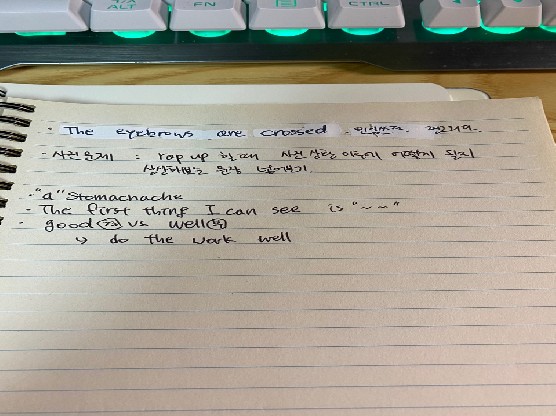 ALT
FN
CTRL
· The eyebrows are crossed
- 사진 문제 : Pop up 할 때 사진 상황 이후에 어떻게 될지
상상하는 문장 넣기
- "a" Stomachache
- The first thing I can see is "~~"
- good vs well
↳ do the work well